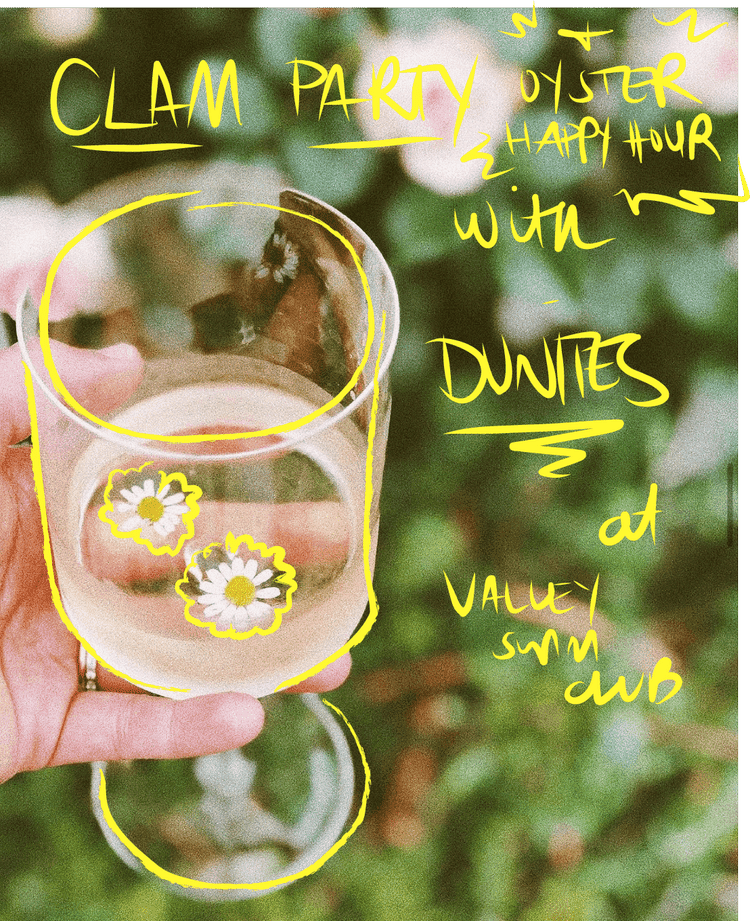 CLAM PARTY
+
OYSTER
HAPPY HOUR
with
DUNITES
at
VALLEY
SWIM
CLUB